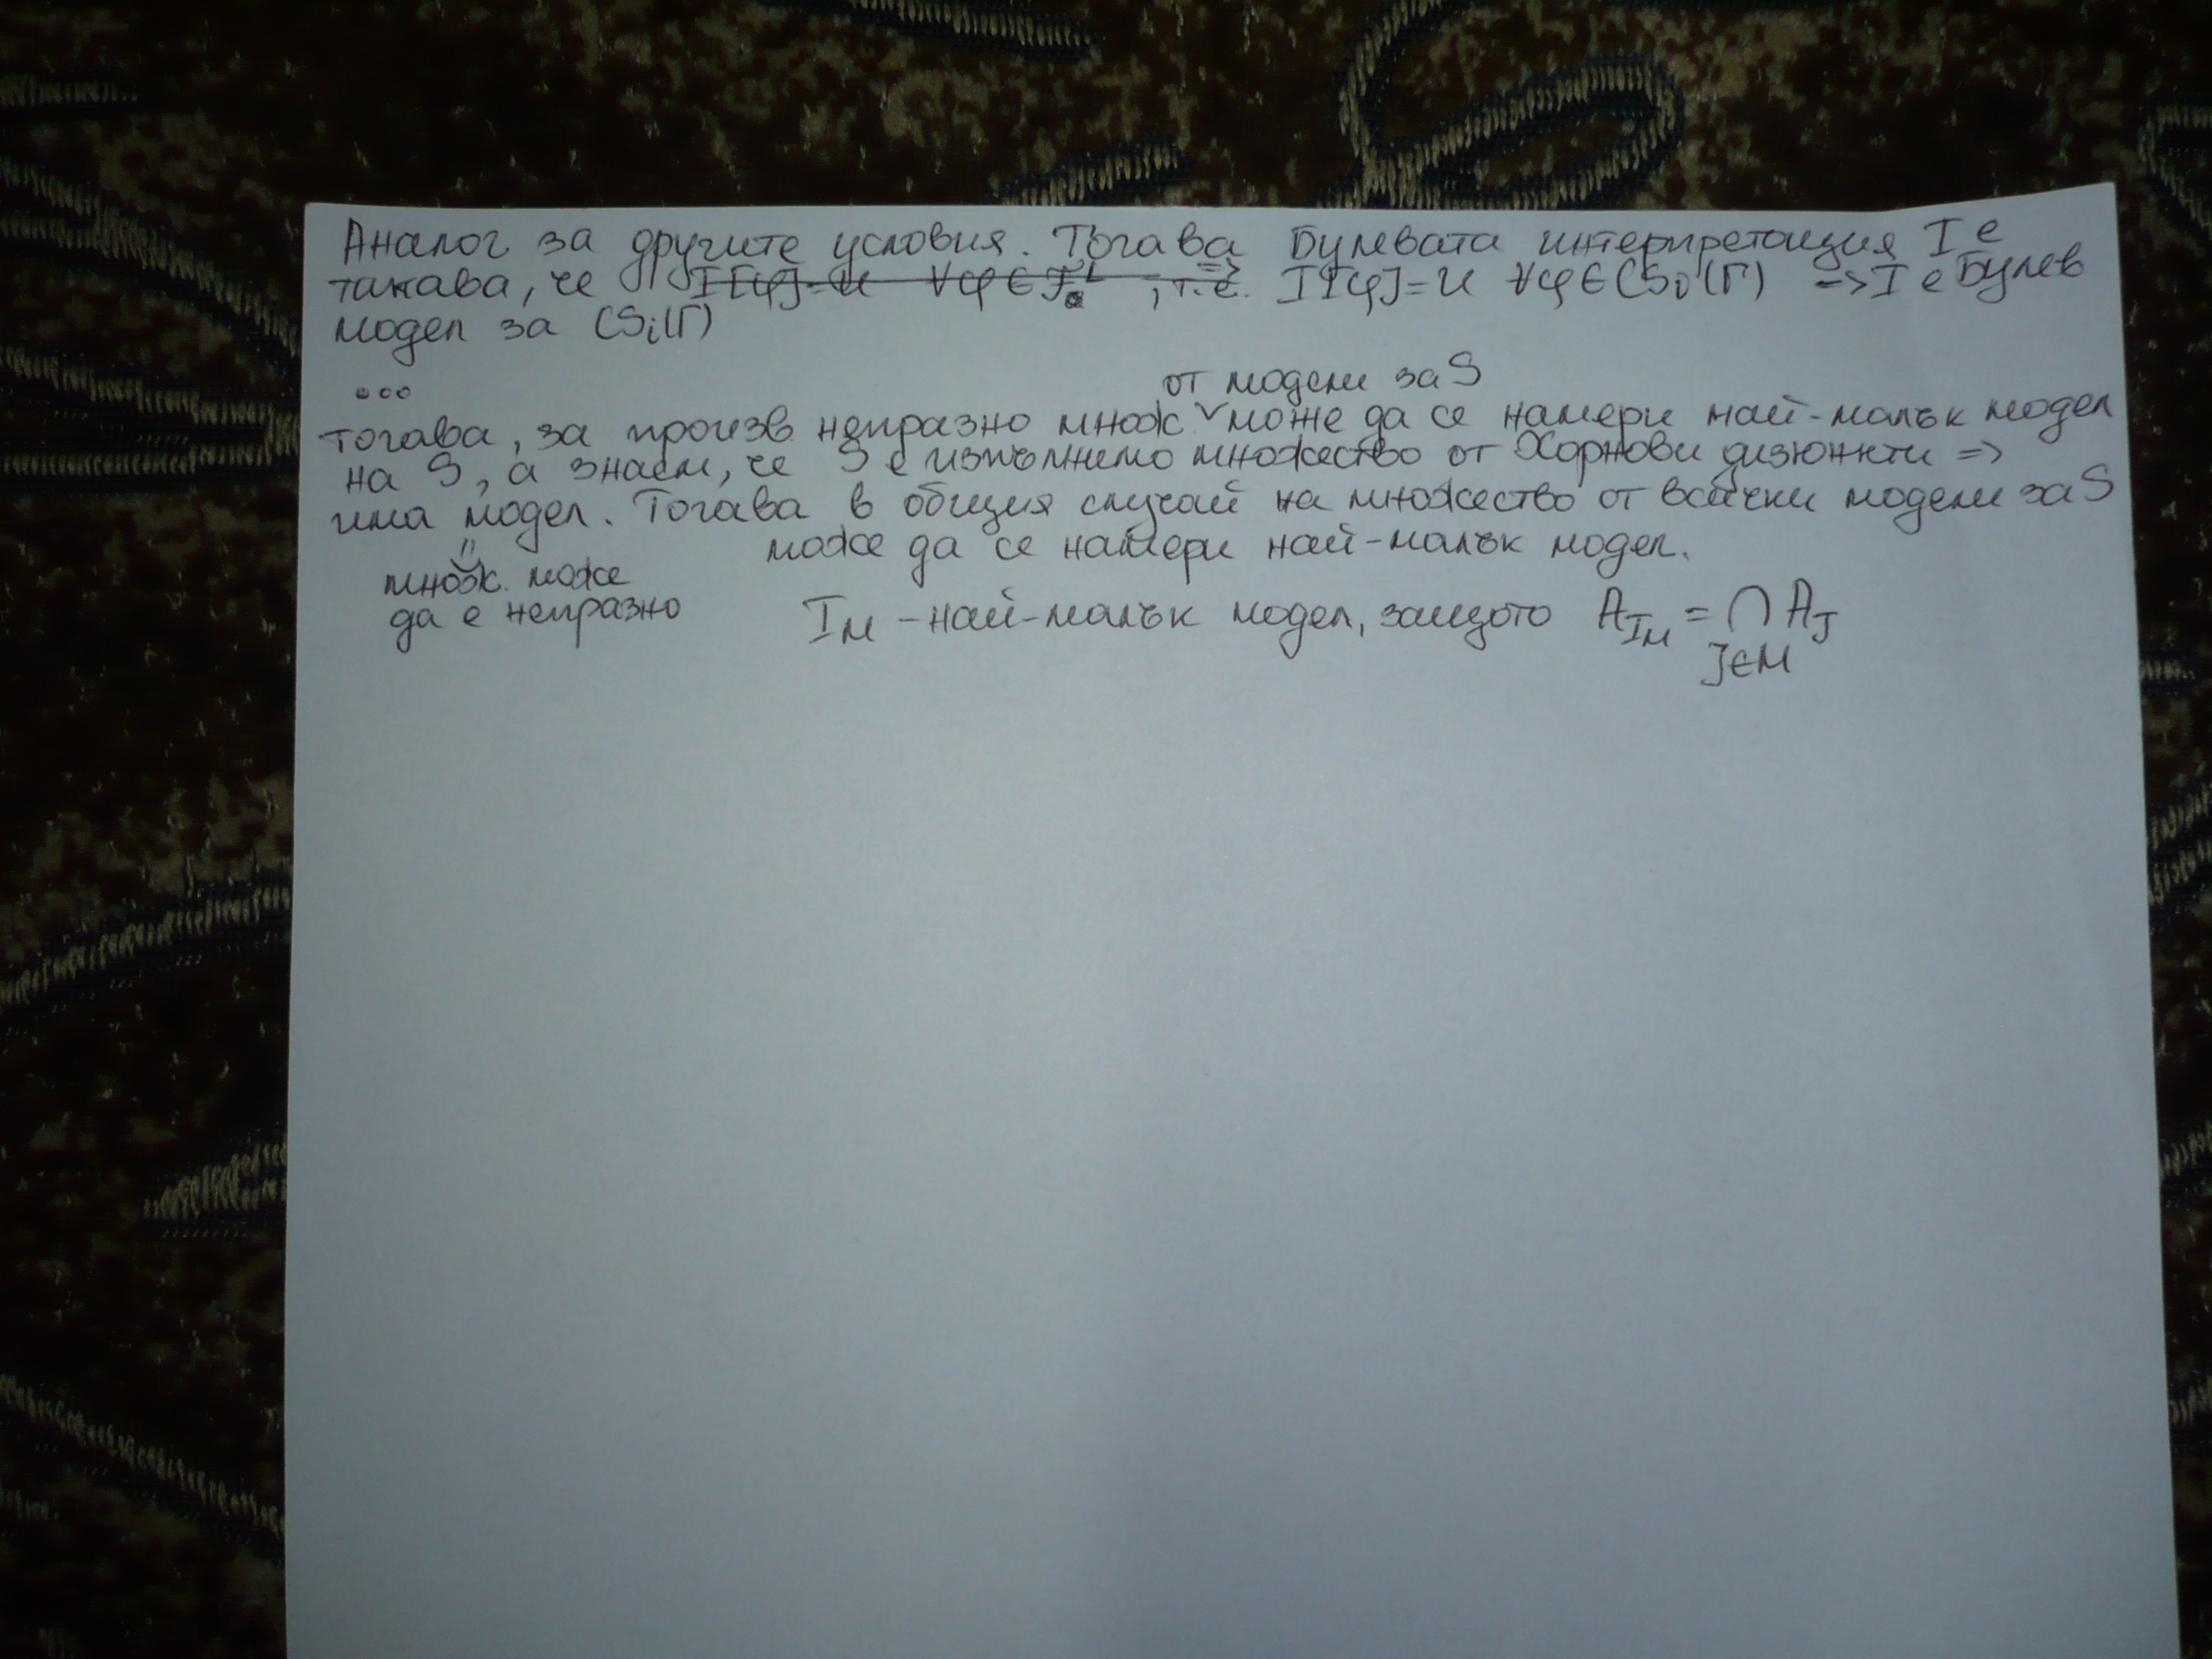 Аналог за другите условия. Тогава Булевата интерпретация I е
такава, че I[φ]=И ∀φ∈ , т.е. => I[φ]=И ∀φ∈CSi(Γ) => I е Булев
модел за CSi(Γ)
...
от модели за S
тогава, за произв. непразно множ. може да се намери най-малък модел
на S, а знаем, че S е изпълнимо множество от Хорнови дизюнкти =>
има модел. Тогава в общия случай на множество от всички модели за S
може да се намери най-малък модел.
множ. може
да е непразно
I_M - най-малък модел, защото A_{I_M} = ∩ A_J
J∈M